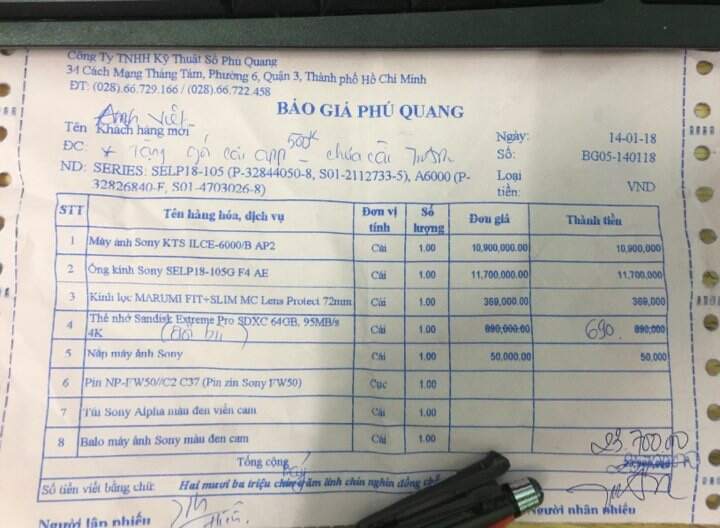 Công Ty TNHH Kỹ Thuật Số Phú Quang
34 Cách Mạng Tháng Tám, Phường 6, Quận 3, Thành phố Hồ Chí Minh
ĐT: (028).66.729.166 / (028).66.722.458
BÁO GIÁ PHÚ QUANG
Anh Việt
Tên Khách hàng mới
Ngày: 14-01-18
ĐC: * Tặng gói cài app 500k - chưa cài
Số: BG05-140118
ND: SERIES: SELP18-105 (P-32844050-8, S01-2112733-5), A6000 (P-32826840-F, S01-4703026-8)
Loại tiền: VND
STT Tên hàng hóa, dịch vụ Đơn vị tính Số lượng Đơn giá Thành tiền
1 Máy ảnh Sony KTS ILCE-6000/B AP2 Cái 1.00 10,900,000.00 10,900,000
2 Ống kính Sony SELP18-105G F4 AE Cái 1.00 11,700,000.00 11,700,000
3 Kính lọc MARUMI FIT+SLIM MC Lens Protect 72mm Cái 1.00 369,000.00 369,000
4 Thẻ nhớ Sandisk Extreme Pro SDXC 64GB, 95MB/s 4K Cái 1.00 890,000.00 690. 890,000
5 Nắp máy ảnh Sony Cái 1.00 50,000.00 50,000
6 Pin NP-FW50//C2 C37 (Pin zin Sony FW50) Cục 1.00
7 Túi Sony Alpha màu đen viền cam Cái 1.00
8 Balo máy ảnh Sony màu đen cam Cái 1.00
23.700.00
Tổng cộng
Số tiền viết bằng chữ: Hai mươi ba triệu chín trăm linh chín nghìn đồng chẵn
Người lập phiếu
Người nhận phiếu